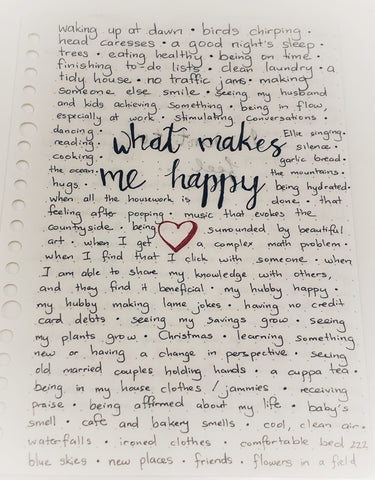 waking up at dawn · birds chirping ·
head caresses · a good night's sleep ·
trees · eating healthy · being on time ·
finishing to-do lists · clean laundry · a
tidy house · no traffic jams · making
someone else smile · seeing my husband
and kids achieving something · being in flow,
especially at work · stimulating conversations ·
dancing · Ellie singing ·
reading · silence ·
cooking · garlic bread ·
the ocean · the mountains ·
hugs · being hydrated ·
what makes
me happy
when all the housework is done · that
feeling after pooping · music that evokes the
countryside · being surrounded by beautiful
art · when I get a complex math problem ·
when I find that I click with someone · when
I am able to share my knowledge with others,
and they find it beneficial · my hubby happy ·
my hubby making lame jokes · having no credit
card debts · seeing my savings grow · seeing
my plants grow · Christmas · learning something
new or having a change in perspective · seeing
old married couples holding hands · a cuppa tea ·
being in my house clothes / jammies · receiving
praise · being affirmed about my life · baby's
smell · cafe and bakery smells · cool, clean air ·
waterfalls · ironed clothes · comfortable bed zzz
blue skies · new places · friends · flowers in a field